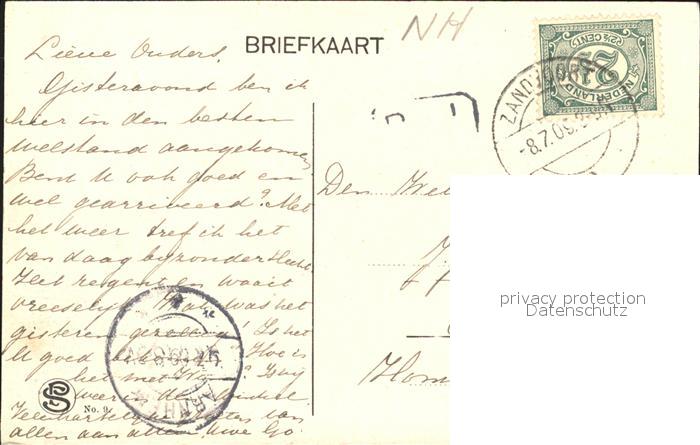 BRIEFKAART
NH
NEDERLAND
2½ CENT
ZANDVOORT
-8.7.09.
Lieve Ouders,
Gisteravond ben ik
hier in den besten
welstand aangekomen.
Bent U ook goed en
wel gearriveerd? Met
het weer tref ik het
van daag bijzonder
Het regent en waait
vreeselijk was het
gisteren
U goed Hoe is
het met
weer
van
allen aan allen, Uwe
Den
privacy protection
Datenschutz
ARNHEM
No. 9.